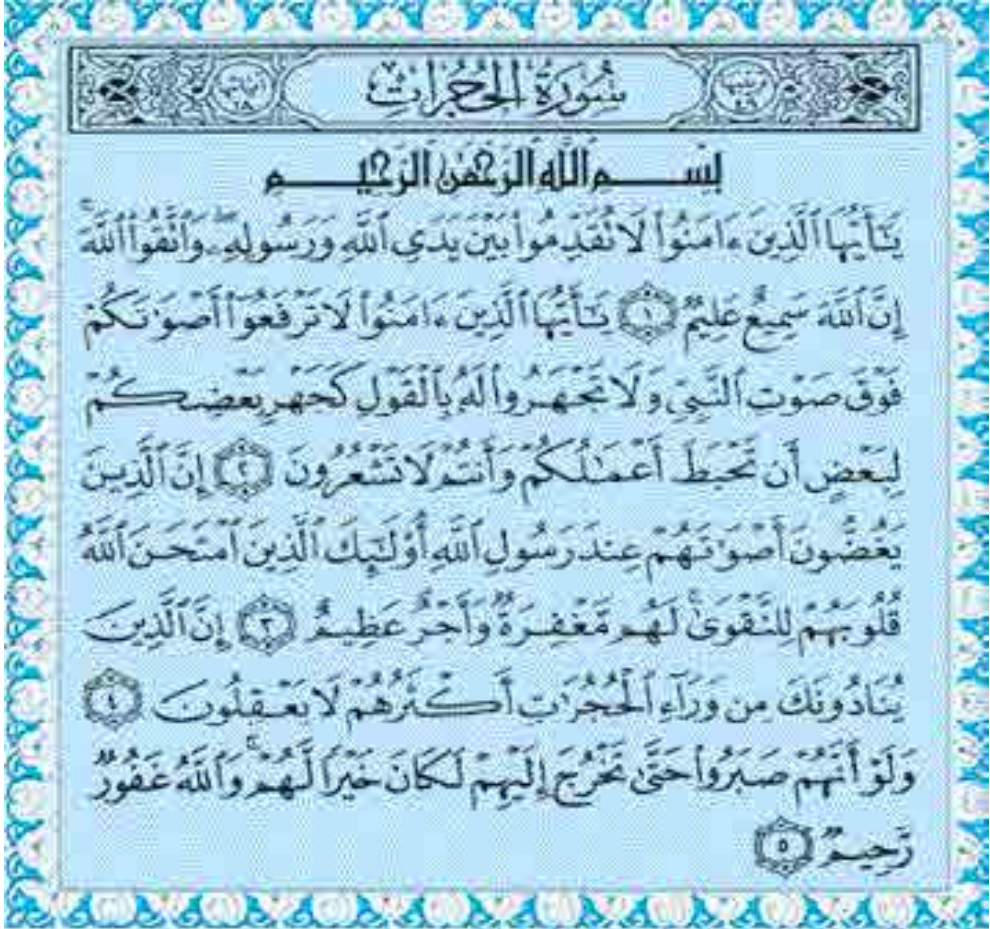 سُورَةُ الْحُجُرَاتِ
بِسْمِ اللَّهِ الرَّحْمَٰنِ الرَّحِيمِ
يَٰٓأَيُّهَا ٱلَّذِينَ ءَامَنُوا۟ لَا تُقَدِّمُوا۟ بَيْنَ يَدَىِ ٱللَّهِ وَرَسُولِهِۦ ۖ وَٱتَّقُوا۟ ٱللَّهَ ۚ
إِنَّ ٱللَّهَ سَمِيعٌ عَلِيمٌ ١ يَٰٓأَيُّهَا ٱلَّذِينَ ءَامَنُوا۟ لَا تَرْفَعُوٓا۟ أَصْوَٰتَكُمْ
فَوْقَ صَوْتِ ٱلنَّبِىِّ وَلَا تَجْهَرُوا۟ لَهُۥ بِٱلْقَوْلِ كَجَهْرِ بَعْضِكُمْ
لِبَعْضٍ أَن تَحْبَطَ أَعْمَٰلُكُمْ وَأَنتُمْ لَا تَشْعُرُونَ ٢ إِنَّ ٱلَّذِينَ
يَغُضُّونَ أَصْوَٰتَهُمْ عِندَ رَسُولِ ٱللَّهِ أُو۟لَٰٓئِكَ ٱلَّذِينَ ٱمْتَحَنَ ٱللَّهُ
قُلُوبَهُمْ لِلتَّقْوَىٰ ۚ لَهُم مَّغْفِرَةٌ وَأَجْرٌ عَظِيمٌ ٣ إِنَّ ٱلَّذِينَ
يُنَادُونَكَ مِن وَرَآءِ ٱلْحُجُرَٰتِ أَكْثَرُهُمْ لَا يَعْقِلُونَ ٤
وَلَوْ أَنَّهُمْ صَبَرُوا۟ حَتَّىٰ تَخْرُجَ إِلَيْهِمْ لَكَانَ خَيْرًا لَّهُمْ ۚ وَٱللَّهُ غَفُورٌ
رَّحِيمٌ ٥